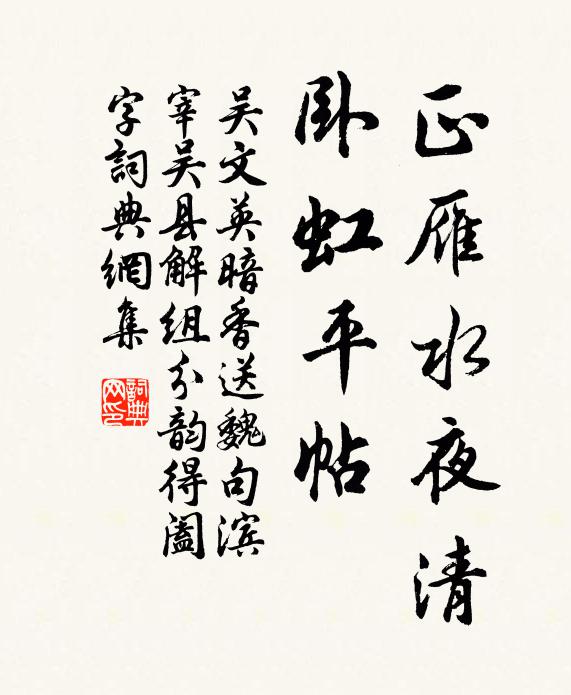 正雁水夜清
卧虹平帖
吴文英暗香送魏句滨
宰吴县解组分韵得阖
字詞典網集
詞典网印